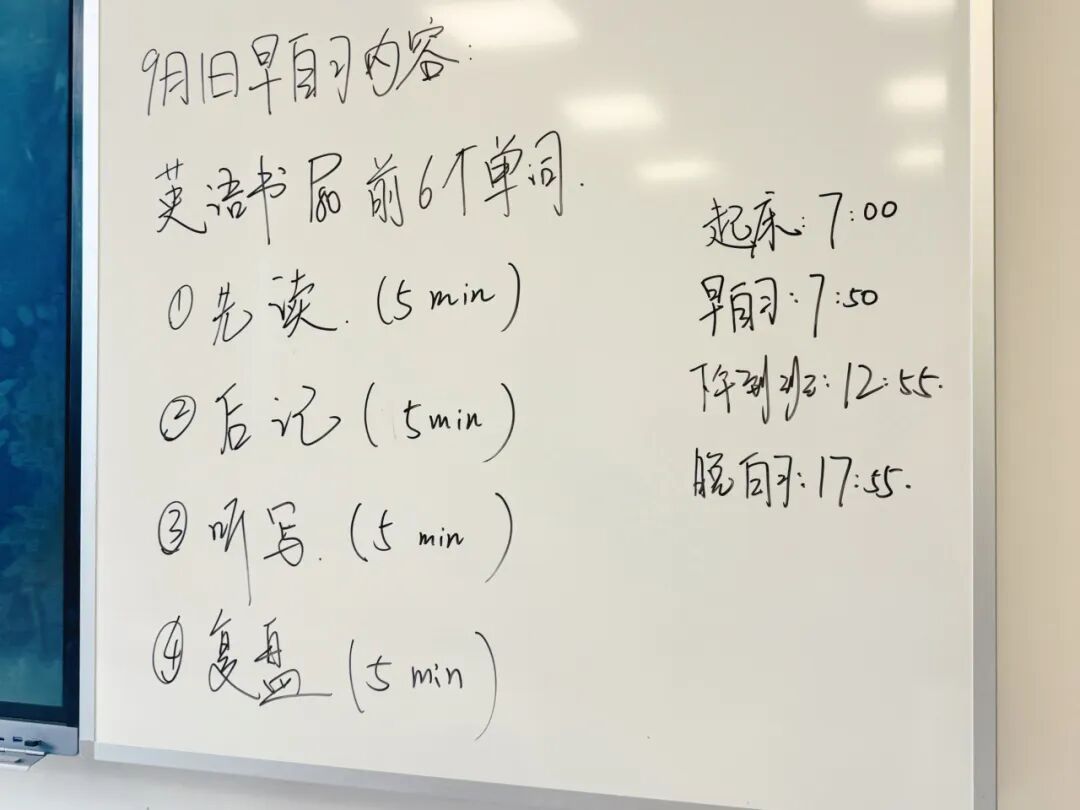 9月1日早自习内容:
英语书P80前6个单词.
①先读.(5min)
②后记(5min)
③听写.(5min)
④复盘(5min)
起床:7:00
早自习:7:50
下午到班:12:55.
晚自习:17:55.